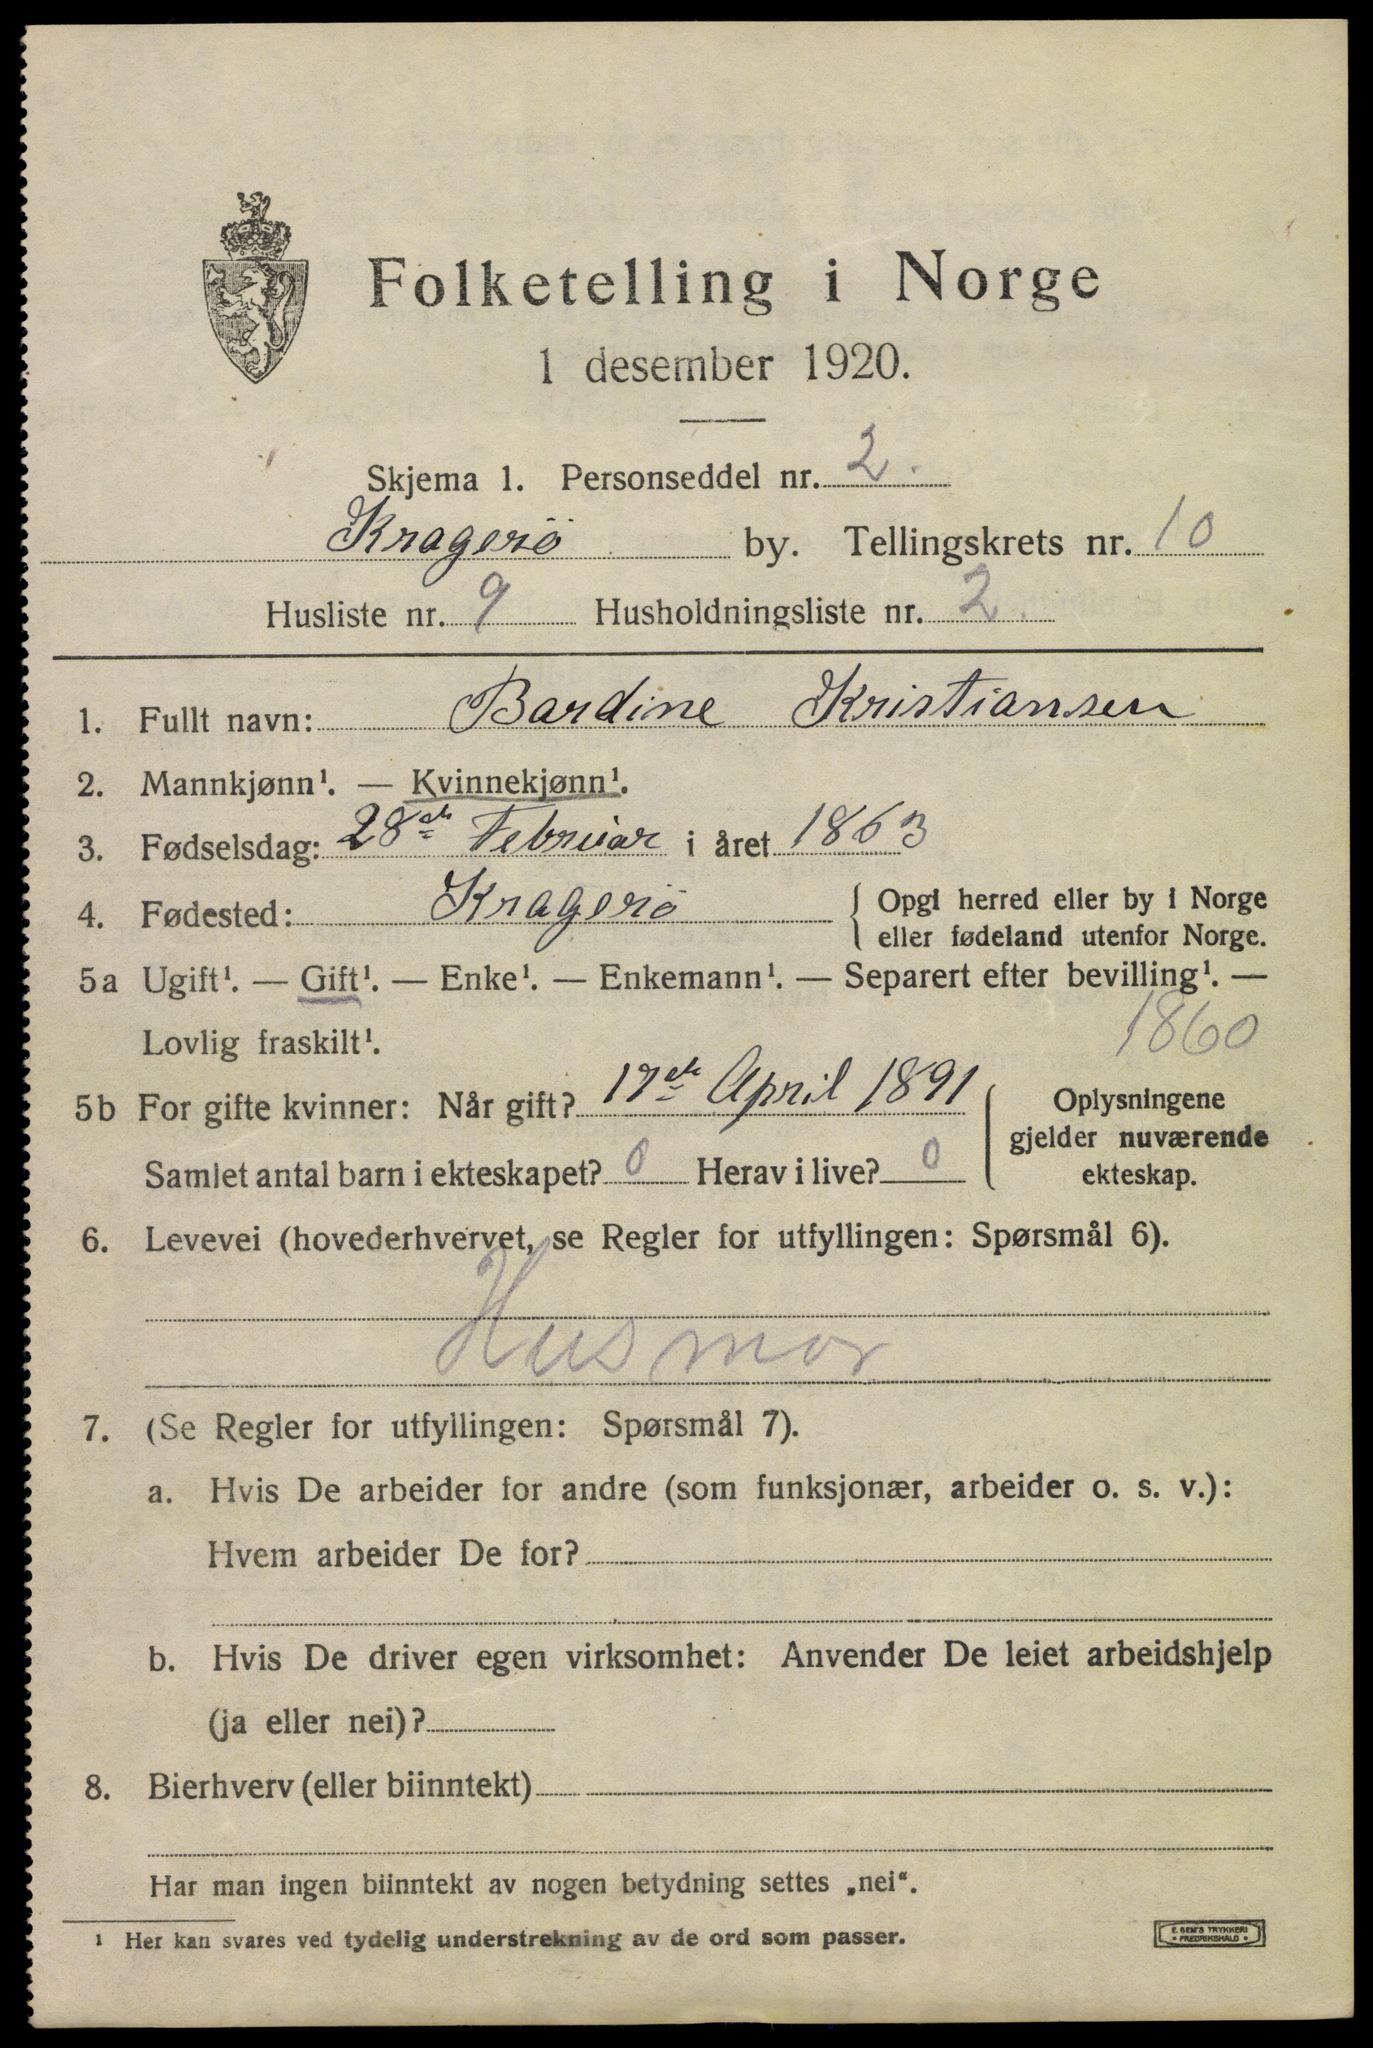 Folketelling i Norge
1 desember 1920.
Skjema 1. Personseddel nr. 2.
Kragerö by. Tellingskrets nr. 10
Husliste nr. 9 Husholdningsliste nr. 2.
1. Fullt navn: Bardine Kristiansen
2. Mannkjønn¹. — Kvinnekjønn¹.
3. Fødselsdag: 28de Februar i året 1863
4. Fødested: Kragerö { Opgi herred eller by i Norge
eller fødeland utenfor Norge.
5a Ugift¹. — Gift¹. — Enke¹. — Enkemann¹. — Separert efter bevilling¹. —
Lovlig fraskilt¹. 1860
5b For gifte kvinner: Når gift? 17de April 1891
Samlet antal barn i ekteskapet? 0 Herav i live? 0
Oplysningene
gjelder nuværende
ekteskap.
6. Levevei (hovederhvervet, se Regler for utfyllingen: Spørsmål 6).
Husmor
7. (Se Regler for utfyllingen: Spørsmål 7).
a. Hvis De arbeider for andre (som funksjonær, arbeider o. s. v.):
Hvem arbeider De for?
b. Hvis De driver egen virksomhet: Anvender De leiet arbeidshjelp
(ja eller nei)?
8. Bierhverv (eller biinntekt)
Har man ingen biinntekt av nogen betydning settes „nei“.
¹ Her kan svares ved tydelig understrekning av de ord som passer.
E. SEM'S TRYKKERI
• FREDRIKSHALD •